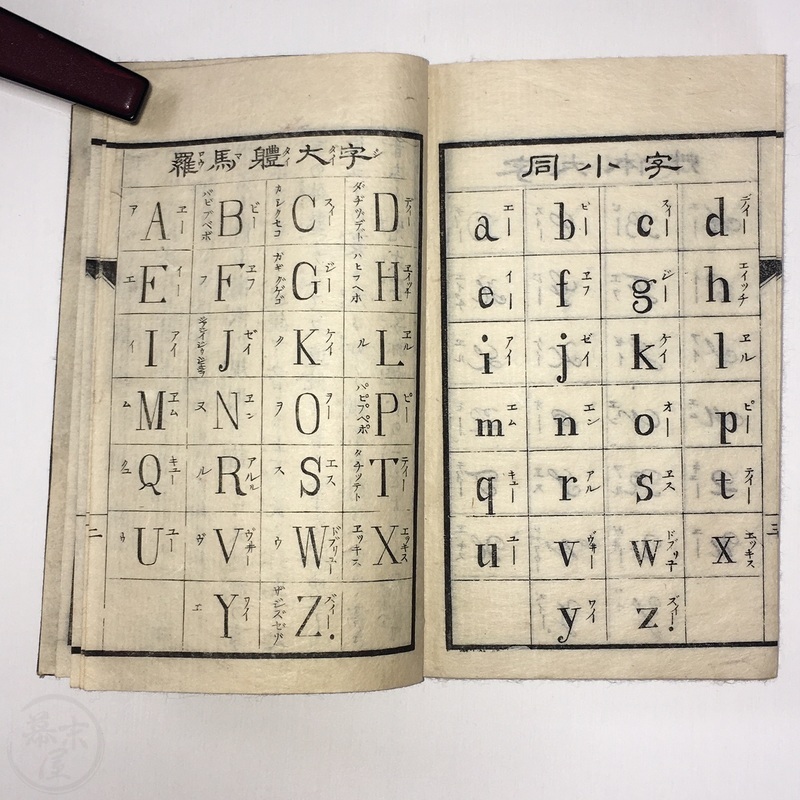 羅馬體大字
ア A エー バビブベボ B ビー カシクセコ C スィー ダヂヅデド D ディー
エ E イー フ F エフ ガギグゲゴ G ジー ハヒフヘホ H エイッチ
イ I アイ J ゼイ ク K ケイ ル L エル
ム M エム ヌ N エン ヲ O ヲー パピプペポ P ピー
Q キユー ル R アルル ス S エス タチツテト T ティー
ウ U ユー ヴ V ヴ井ー ウ W ドブリユー エッキス X エッキス
エ Y ワイ ザジズゼゾ Z ズィー.
二
同小字
a エー b ビー c スィー d ディー
e イー f エフ g ジー h エイッチ
i アイ j ゼイ k ケイ l エル
m エム n エン o オー p ピー
q キユー r アル s エス t ティー
u ユー v ヴ井ー w ドブリユー x エッキス
y ワイ z ズィー.
三
幕末屋